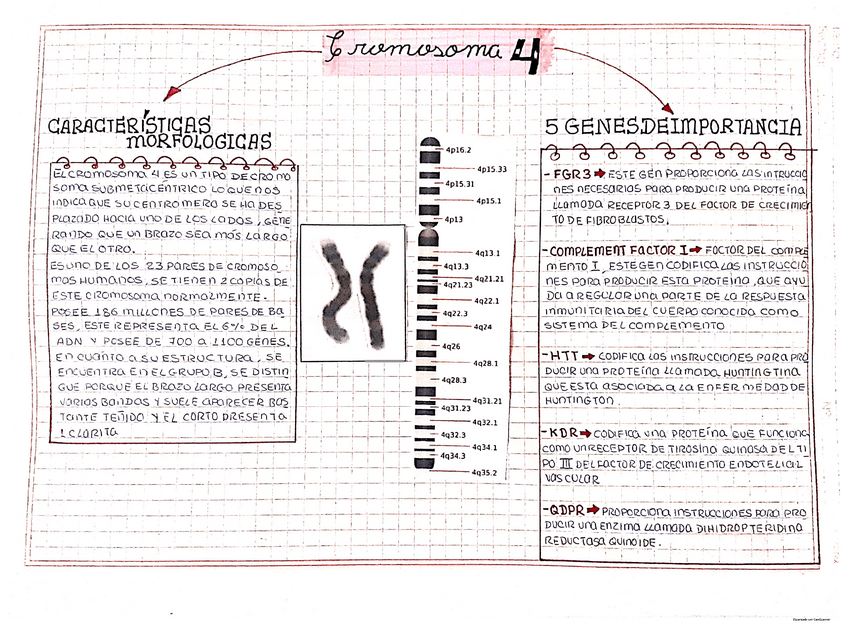 Cromosoma 4
CARACTERÍSTICAS
MORFOLOGICAS
EL CROMOSOMA 4 ES UN TIPO DE CROMO
SOMA SUBMETACÉNTRICO LO QUE NOS
INDICA QUE SU CENTROMERO SE HA DES
PLAZADO HACIA UNO DE LOS LADOS, GENE
RANDO QUE UN BRAZO SEA MÁS LARGO
QUE EL OTRO.
ES UNO DE LOS 23 PARES DE CROMOSO
MAS HUMANOS, SE TIENEN 2 COPIAS DE
ESTE CROMOSOMA NORMALMENTE.
POSEE 186 MILLONES DE PARES DE BA
SES, ESTE REPRESENTA EL 6% DEL
ADN Y POSEE DE 700 A 1100 GENES.
EN CUANTO A SU ESTRUCTURA, SE
ENCUENTRA EN EL GRUPO B, SE DISTIN
GUE PORQUE EL BRAZO LARGO PRESENTA
VARIAS BANDAS Y SUELE APARECER BAS
TANTE TEÑIDO Y EL CORTO PRESENTA
1 CLARITA
4p16.2
4p15.33
4p15.31
4p15.1
4p13
4q13.1
4q13.3
4q21.21
4q21.23
4q22.1
4q22.3
4q24
4q26
4q28.1
4q28.3
4q31.21
4q31.23
4q32.1
4q32.3
4q34.1
4q34.3
4q35.2
5 GENES DE IMPORTANCIA
-FGR3 → ESTE GEN PROPORCIONA LAS INTRUCCIO
NES NECESARIOS PARA PRODUCIR UNA PROTEÍNA
LLAMADA RECEPTOR 3 DEL FACTOR DE CRECIMIEN
TO DE FIBROBLASTOS.
-COMPLEMENT FACTOR I → FACTOR DEL COMPLE
MENTO I, ESTE GEN CODIFICA LAS INSTRUCCIO
NES PARA PRODUCIR ESTA PROTEÍNA, QUE AYU
DA A REGULAR UNA PARTE DE LA RESPUESTA
INMUNITARIA DEL CUERPO CONOCIDA COMO
SISTEMA DEL COMPLEMENTO
-HTT → CODIFICA LAS INSTRUCCIONES PARA PRO
DUCIR UNA PROTEÍNA LLAMADA HUNTINGTINA
QUE ESTA ASOCIADA A LA ENFERMEDAD DE
HUNTINGTON.
-KDR → CODIFICA UNA PROTEÍNA QUE FUNCIONA
COMO UN RECEPTOR DE TIROSINO QUINASA DEL TI
PO III DEL FACTOR DE CRECIMIENTO ENDOTELIAL
VASCULAR
-QDPR → PROPORCIONA INSTRUCCIONES PARA PRO
DUCIR UNA ENZIMA LLAMADA DIHIDROPTERIDINA
REDUCTASA QUINOIDE.